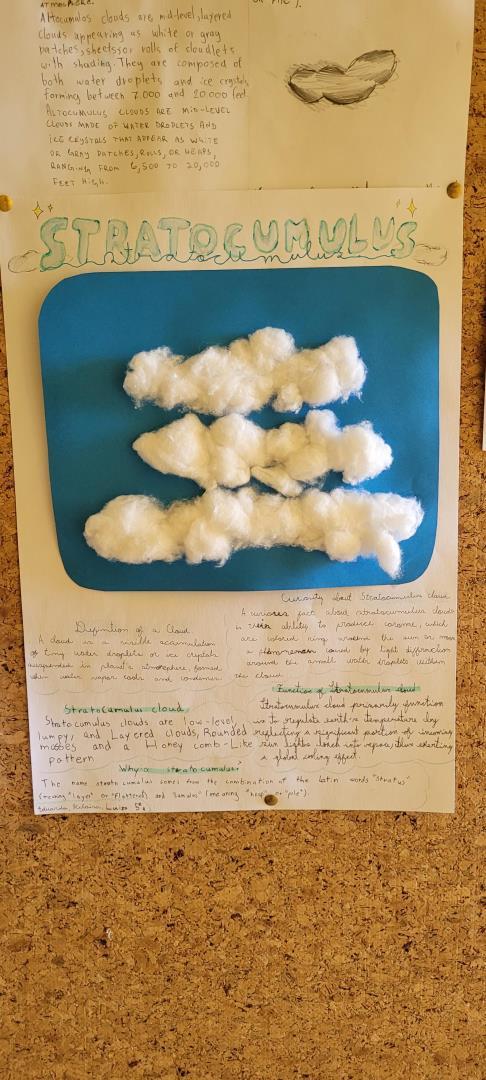 ATMOSPHERE.
Altocumulos clouds are mid-level, layered
clouds appearing as white or gray
patches, sheets, or rolls of cloudlets
with shading. They are composed of
both water droplets and ice crystals
forming between 7.000 and 20.000 feet.
ALTOCUMULUS CLOUDS ARE MID-LEVEL
CLOUDS MADE OF WATER DROPLETS AND
ICE CRYSTALS THAT APPEAR AS WHITE
OR GRAY PATCHES, ROLLS, OR HEAPS,
RANGING FROM 6,500 TO 20,000
FEET HIGH.
or "PILE").
STRATOCUMULUS
stratocumulus
Definition of a Cloud
A cloud is a visible accumulation
of tiny water droplets or ice crystals
suspended in planet's atmosphere, formed
when water vapor cools and condenses.
Stratocumulus cloud
Stratocumulus clouds are low-level,
lumpy, and Layered clouds, Rounded
masses and a Honey comb-Like
pattern
Curiosity about Stratocumulus cloud
A curious fact about stratocumulus clouds
is their ability to produce coronae, which
are colored ring around the sun or moon
a Phenomenon caused by light diffraction
around the small water droplets within
the cloud.
Function of Stratocumulus cloud
Stratocumulus cloud primarily function
is to regulate earth's temperature by
reflecting a significant portion of incoming
sun light back into space, thus exerting
a global cooling effect.
Why a stratocumulus?
The name stratocumulus comes from the combination of the latin words "Stratus"
(meaning "layer" or "flattened) and "Cumulus" (meaning "heap" or "pile").
Eduarda, Luiza 5ºa